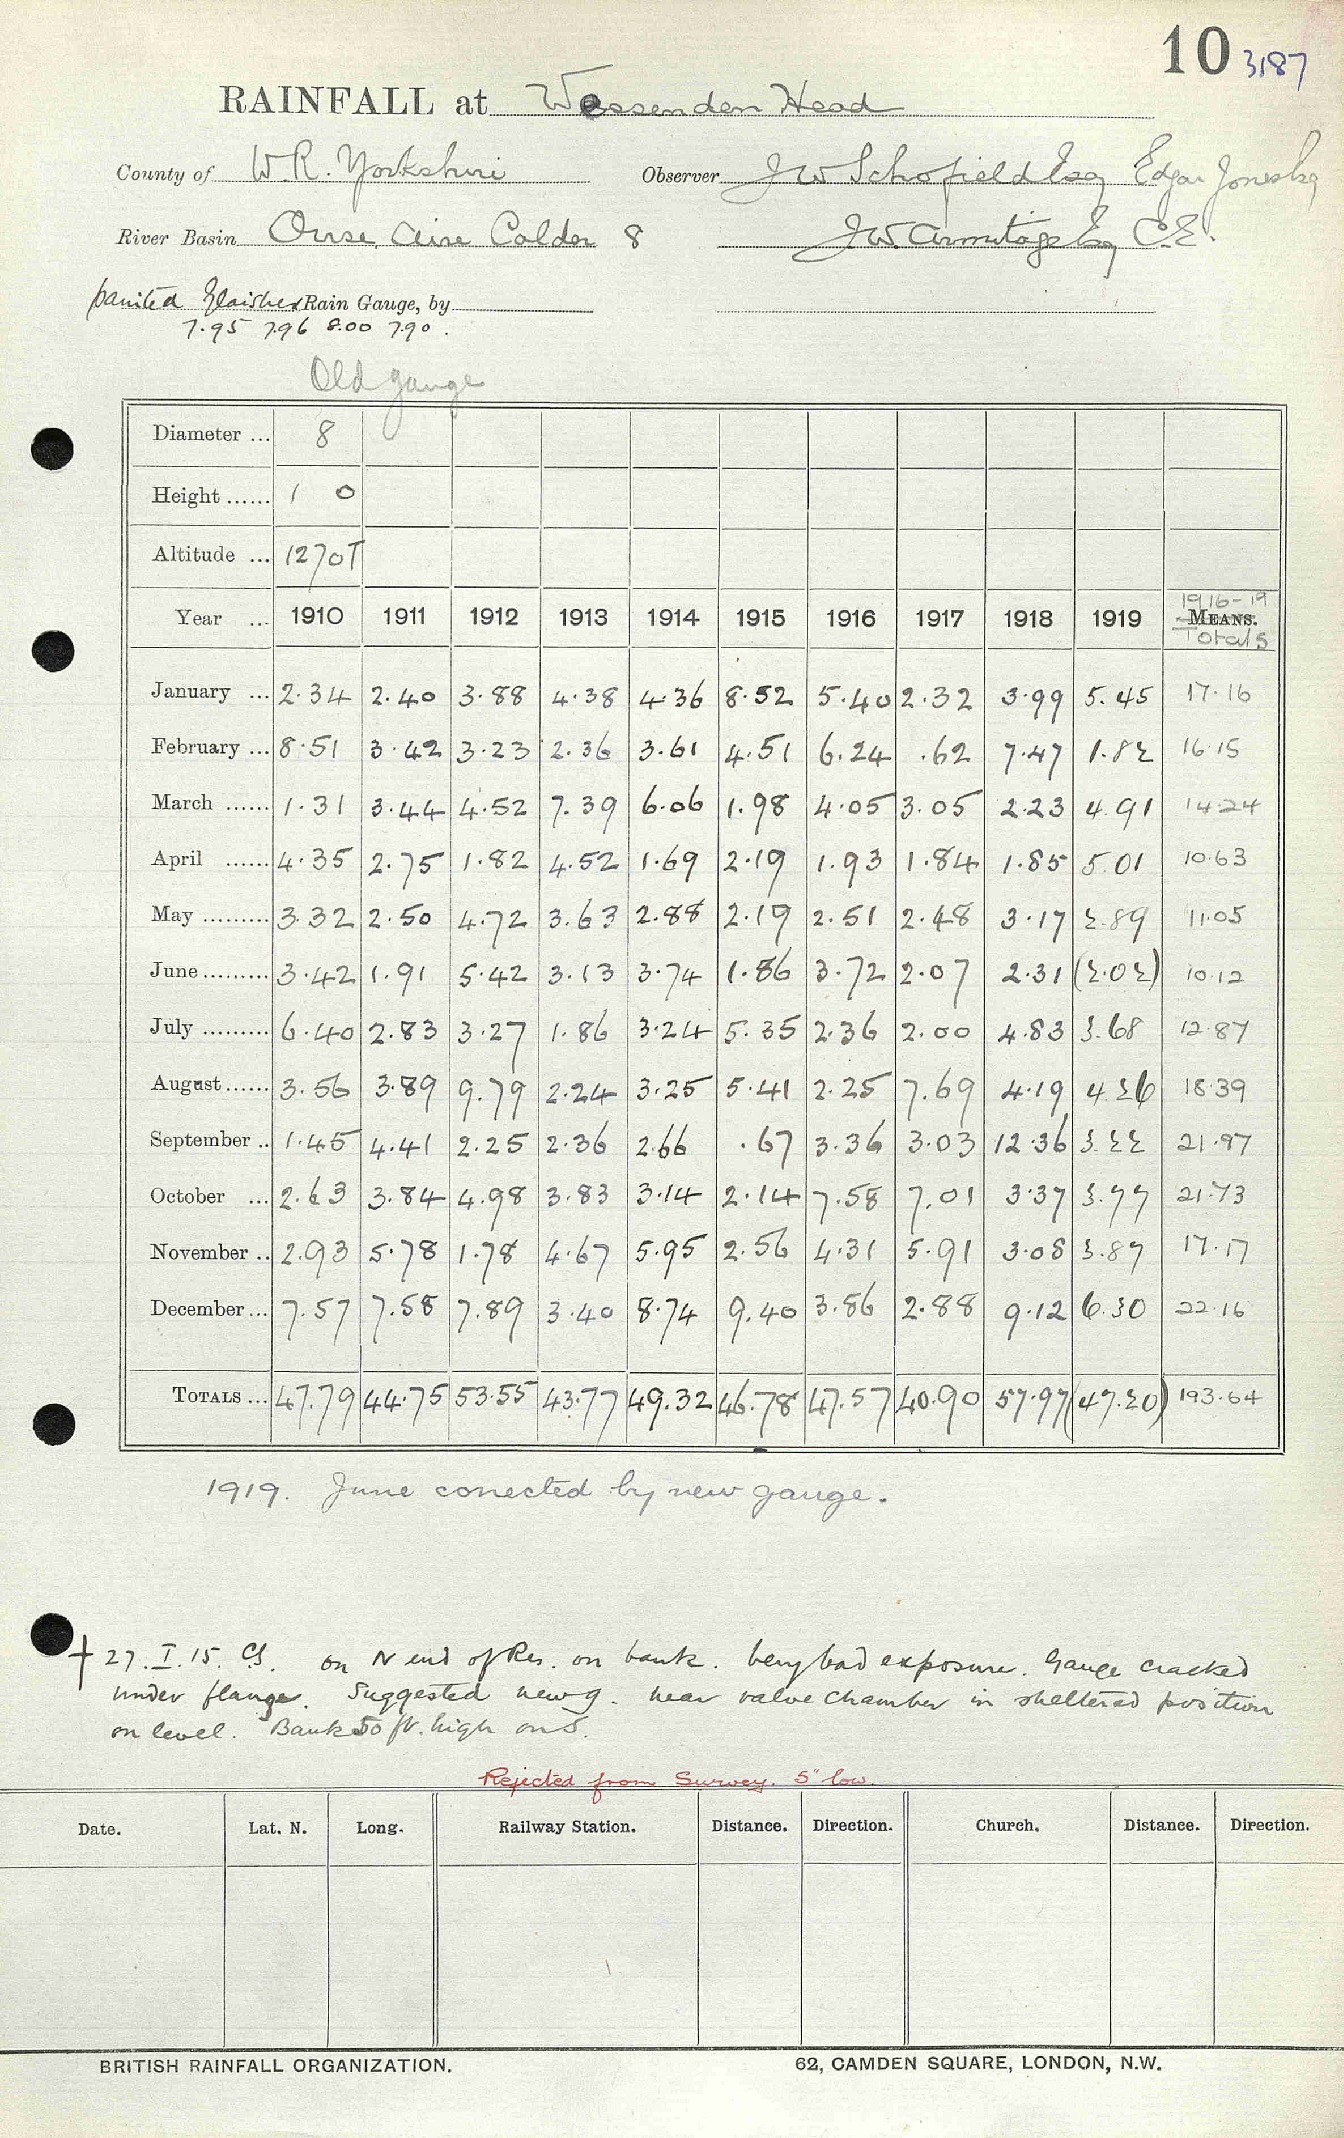 10 3187
RAINFALL at Wessenden Head
County of W.R. Yorkshire Observer J W Schofield Esq Edgar Jones Esq
River Basin Ouse Aire Calder 8 J.W. Armitage Esq C.E.
painted Glaisher Rain Gauge, by
7.95 7.96 8.00 7.90.
Old gauge
Diameter ... 8
Height ...... 1 0
Altitude ... 1270T
1916-19
Year ... 1910 1911 1912 1913 1914 1915 1916 1917 1918 1919 MEANS.
Totals
January ... 2.34 2.40 3.88 4.38 4.36 8.52 5.40 2.32 3.99 5.45 17.16
February ... 8.51 3.42 3.23 2.36 3.61 4.51 6.24 .62 7.47 1.82 16.15
March ...... 1.31 3.44 4.52 7.39 6.06 1.98 4.05 3.05 2.23 4.91 14.24
April ...... 4.35 2.75 1.82 4.52 1.69 2.19 1.93 1.84 1.85 5.01 10.63
May ......... 3.32 2.50 4.72 3.63 2.88 2.19 2.51 2.48 3.17 2.89 11.05
June ......... 3.42 1.91 5.42 3.13 3.74 1.86 3.72 2.07 2.31 (2.02) 10.12
July ......... 6.40 2.83 3.27 1.86 3.24 5.35 2.36 2.00 4.83 3.68 12.87
August ...... 3.56 3.89 9.79 2.24 3.25 5.41 2.25 7.69 4.19 4.26 18.39
September .. 1.45 4.41 2.25 2.36 2.66 .67 3.36 3.03 12.36 3.22 21.97
October ... 2.63 3.84 4.98 3.83 3.14 2.14 7.58 7.01 3.37 3.77 21.73
November .. 2.93 5.78 1.78 4.67 5.95 2.56 4.31 5.91 3.08 3.87 17.17
December ... 7.57 7.58 7.89 3.40 8.74 9.40 3.86 2.88 9.12 6.30 22.16
TOTALS ... 47.79 44.75 53.55 43.77 49.32 46.78 47.57 40.90 57.97 (47.20) 193.64
1919. June corrected by new gauge.
+ 27.I.15. CS. on N end of Res. on bank. Very bad exposure. Gauge cracked
under flange. Suggested new g. near valve chamber in sheltered position
on level. Bank 50 ft. high on S.
Rejected from Survey. 5" low.
Date. Lat. N. Long. Railway Station. Distance. Direction. Church. Distance. Direction.
BRITISH RAINFALL ORGANIZATION. 62, CAMDEN SQUARE, LONDON, N.W.